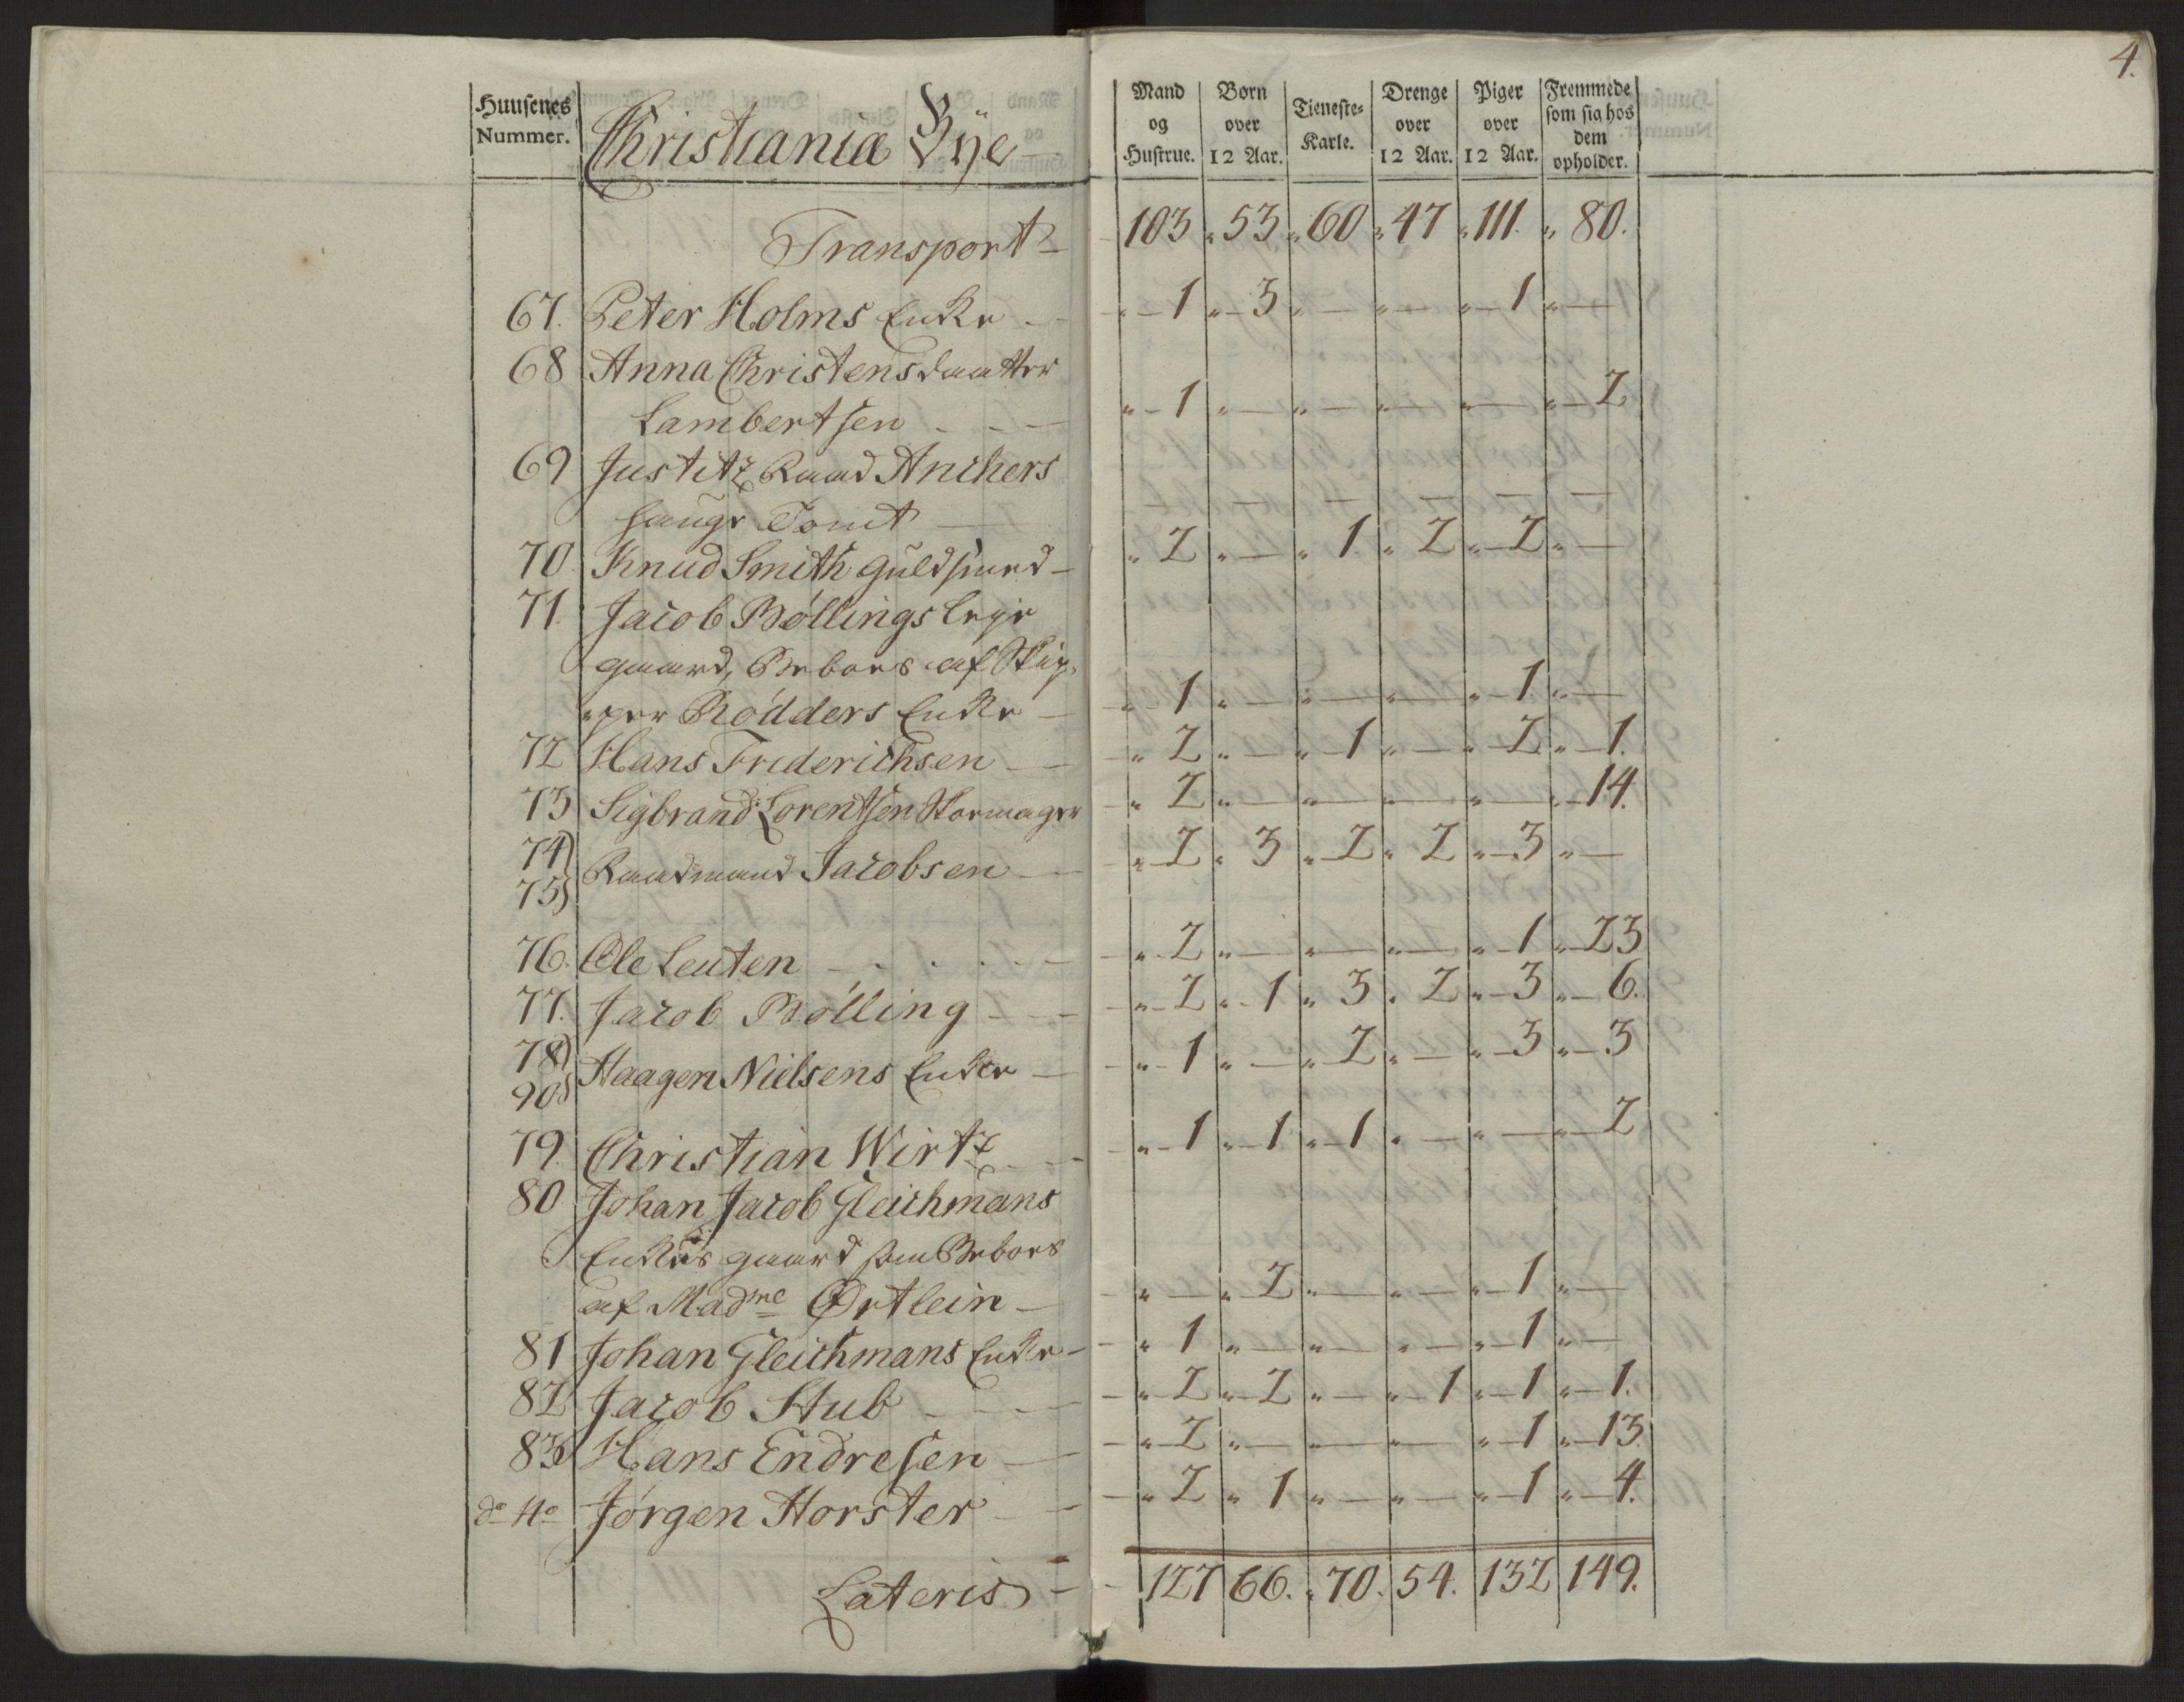 4.
Huusenes Nummer. Christiania Bÿe Mand og Hustrue. Born over 12 Aar. Tieneste-Karle. Drenge over 12 Aar. Piger over 12 Aar. Fremmede som sig hos dem opholder.
Transport 103 53 60 47 111 80.
67. Peter Holms Enke 1 3 — — 1 —
68 Anna Christensdaatter
Lambertsen 1 — — — — 2
69 Justitz Raad Anchers
hauge Tomt — — — — — —
70 Knud Smith Guldsmed 2 — 1 2 2 —
71. Jacob Bøllings leye
gaard, Beboes af Skip-
per Rødders Enke 1 — — — 1 —
72 Hans Friderichsen 2 — 1 — 2 1.
73 Sigbrand Lorentsen Skomager 2 — — — — 14.
74)
75) Raadmand Jacobsen 2 3 2 2 3 —
76. Ole Leuten 2 — — — 1 23
77. Jacob Bølling 2 1 3 2 3 6.
78)
90) Haagen Nielsens Enke 1 — 2 — 3 3
79. Christian Wirtz 1 1 1 — — 2
80 Johan Jacob Gleichmans
Enkes gaard som Beboes
af Madme Ørtlein — 2 — — 1 —
81 Johan Gleichmans Enke 1 — — — 1 —
82 Jacob Stub 2 2 — 1 1 1.
83 Hans Endresen 2 — — — 1 13.
do No Jørgen Horster 2 1 — — 1 4.
Lateris 127 66. 70. 54. 132 149.